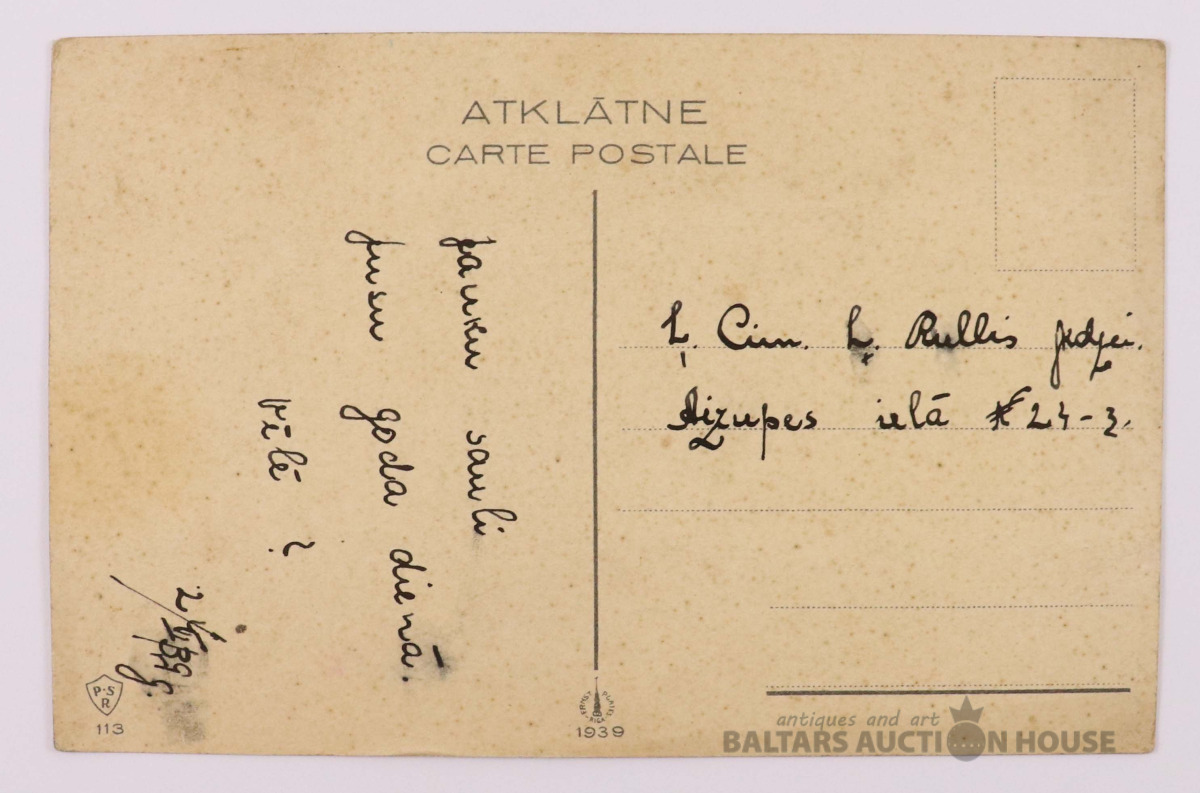 ATKLĀTNE
CARTE POSTALE
Jauku sauli
Jusu goda dienā.
vēlē ?
Ļ. Cien. L. Rullis jkdzei.
Aizupes ielā № 24-3.
P·S
R
113
1939
antiques and art
BALTARS AUCTION HOUSE